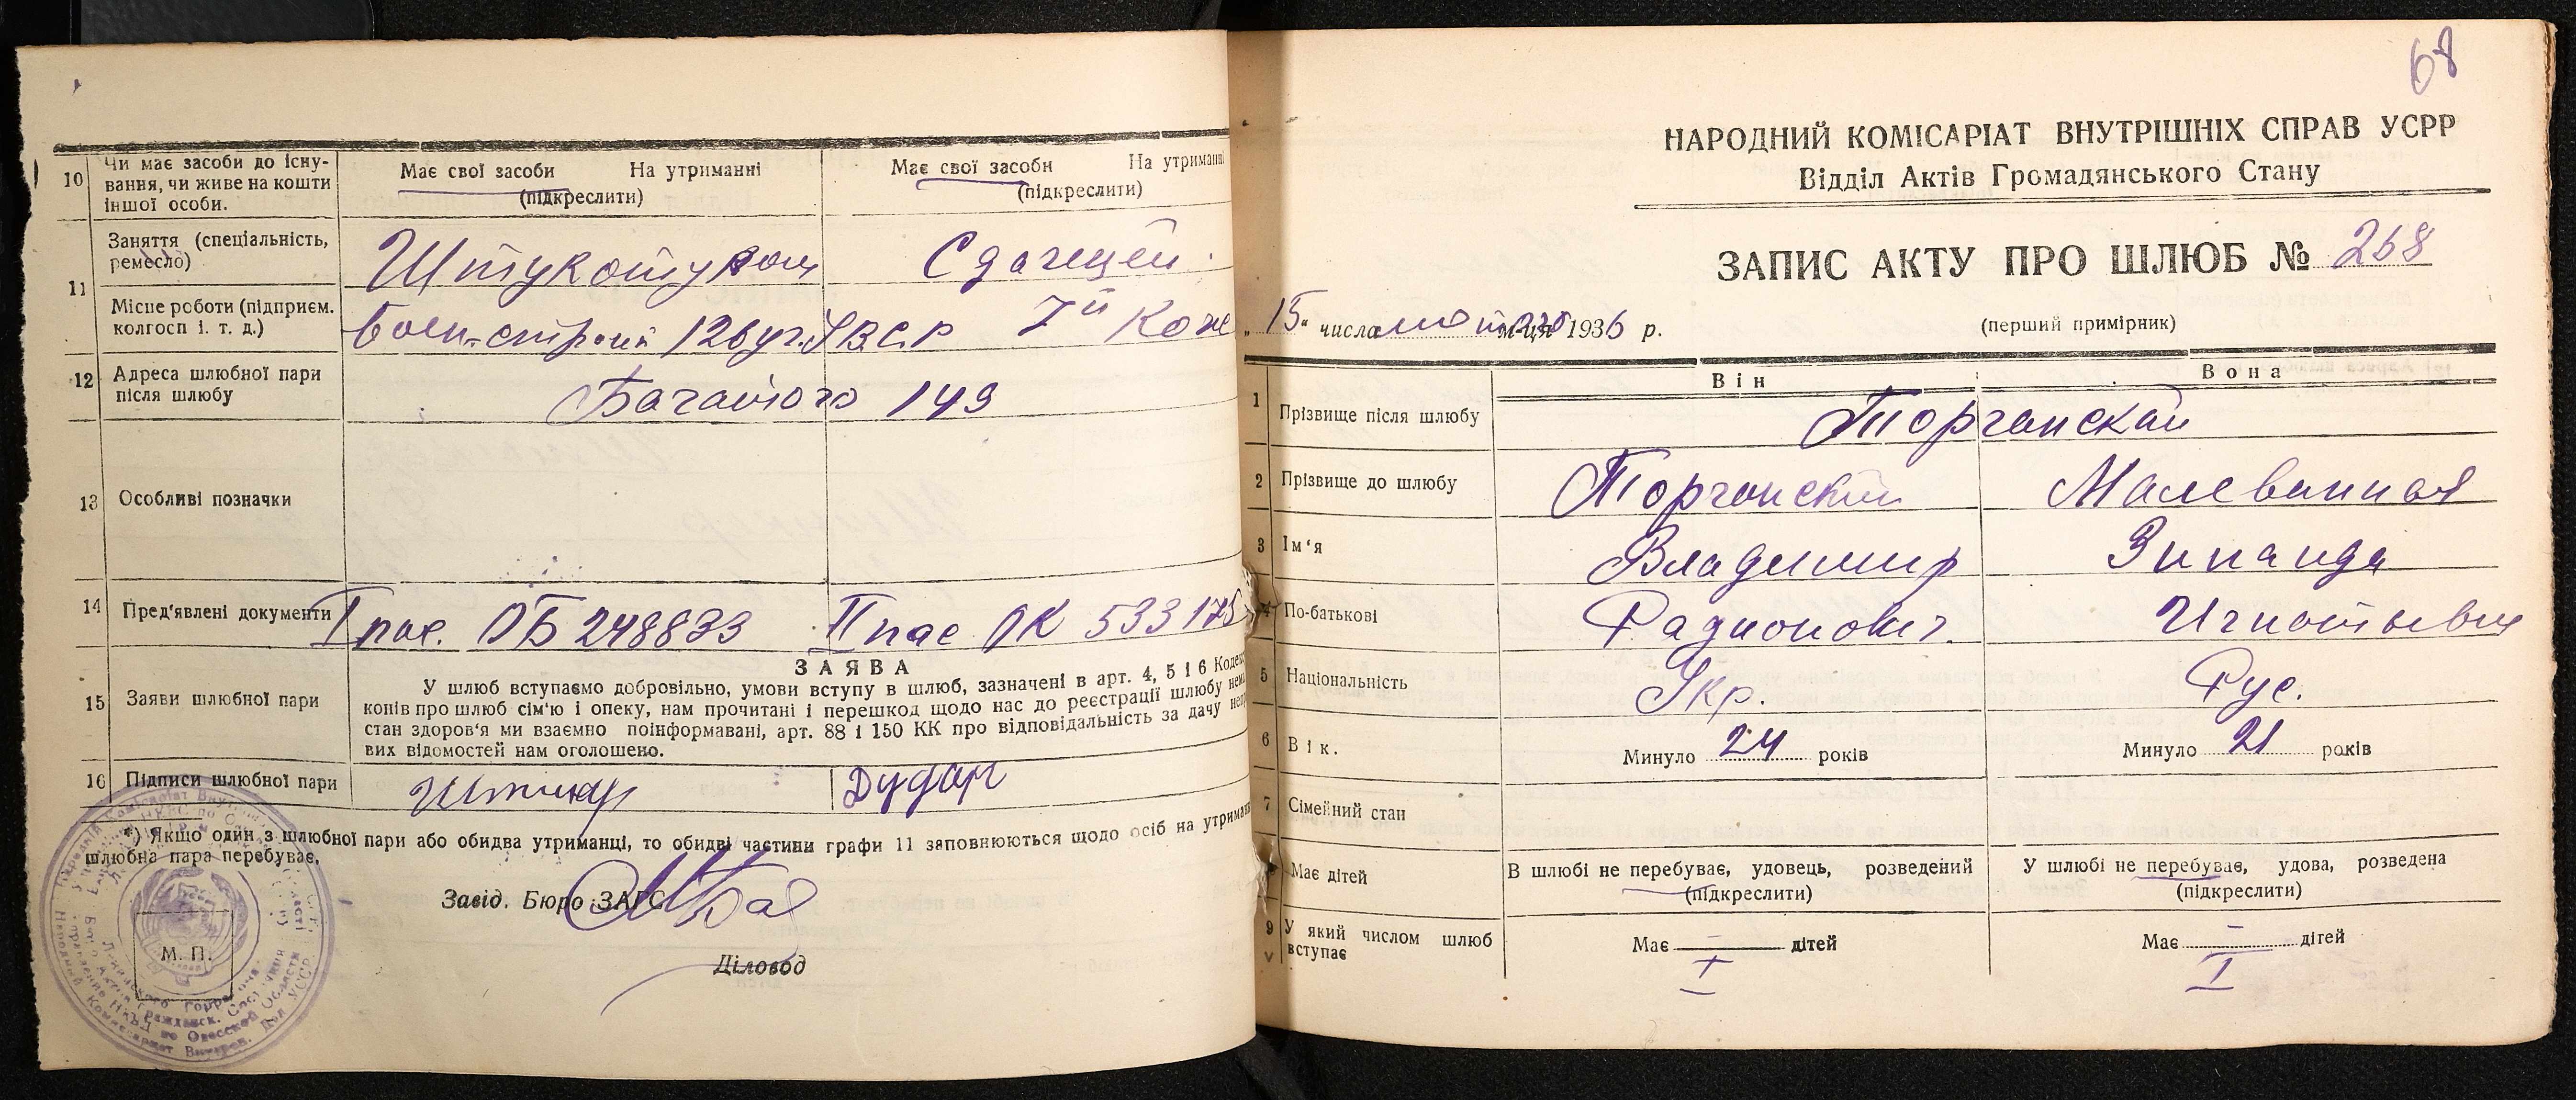 10 Чи має засоби до існу-
вання, чи живе на кошти
іншої особи.
Має свої засоби На утриманні
(підкреслити)
Має свої засоби На утриманні
(підкреслити)
11 Заняття (спеціальність,
ремесло)
Місце роботи (підприєм.
колгосп і. т. д.)
12 Адреса шлюбної пари
після шлюбу
149
13 Особливі позначки
14 Пред'явлені документи
I пас. ОБ 248833 II пас ОК 533175
15 Заяви шлюбної пари
ЗАЯВА
У шлюб вступаємо добровільно, умови вступу в шлюб, зазначені в арт. 4, 5 і 6 Кодек
конів про шлюб сім'ю і опеку, нам прочитані і перешкод щодо нас до реєстрації шлюбу нема
стан здоров'я ми взаємно поінформавані, арт. 88 і 150 КК про відповідальність за дачу неп
вих відомостей нам оголошено.
16 Підписи шлюбної пари
*) Якщо один з шлюбної пари або обидва утриманці, то обидві частини графи 11 заповнюються щодо осіб на утриман
шлюбна пара перебуває.
Завід. Бюро ЗАГС
Діловод
М. П.
68
НАРОДНИЙ КОМІСАРІАТ ВНУТРІШНІХ СПРАВ УСРР
Відділ Актів Громадянського Стану
ЗАПИС АКТУ ПРО ШЛЮБ № 268
„15“ числа м-ця 1936 р.
(перший примірник)
Він Вона
1 Прізвище після шлюбу Торганский
2 Прізвище до шлюбу Торганский Малеванная
3 Ім'я Владимир Зинаида
4 По-батькові Радионович Игнатьевна
5 Національність Укр. Рус.
6 Вік. Минуло 24 років Минуло 21 років
7 Сімейний стан
Має дітей
В шлюбі не перебуває, удовець, розведений
(підкреслити)
У шлюбі не перебуває, удова, розведена
(підкреслити)
9 У який числом шлюб
вступає
Має – дітей Має – дітей
I I